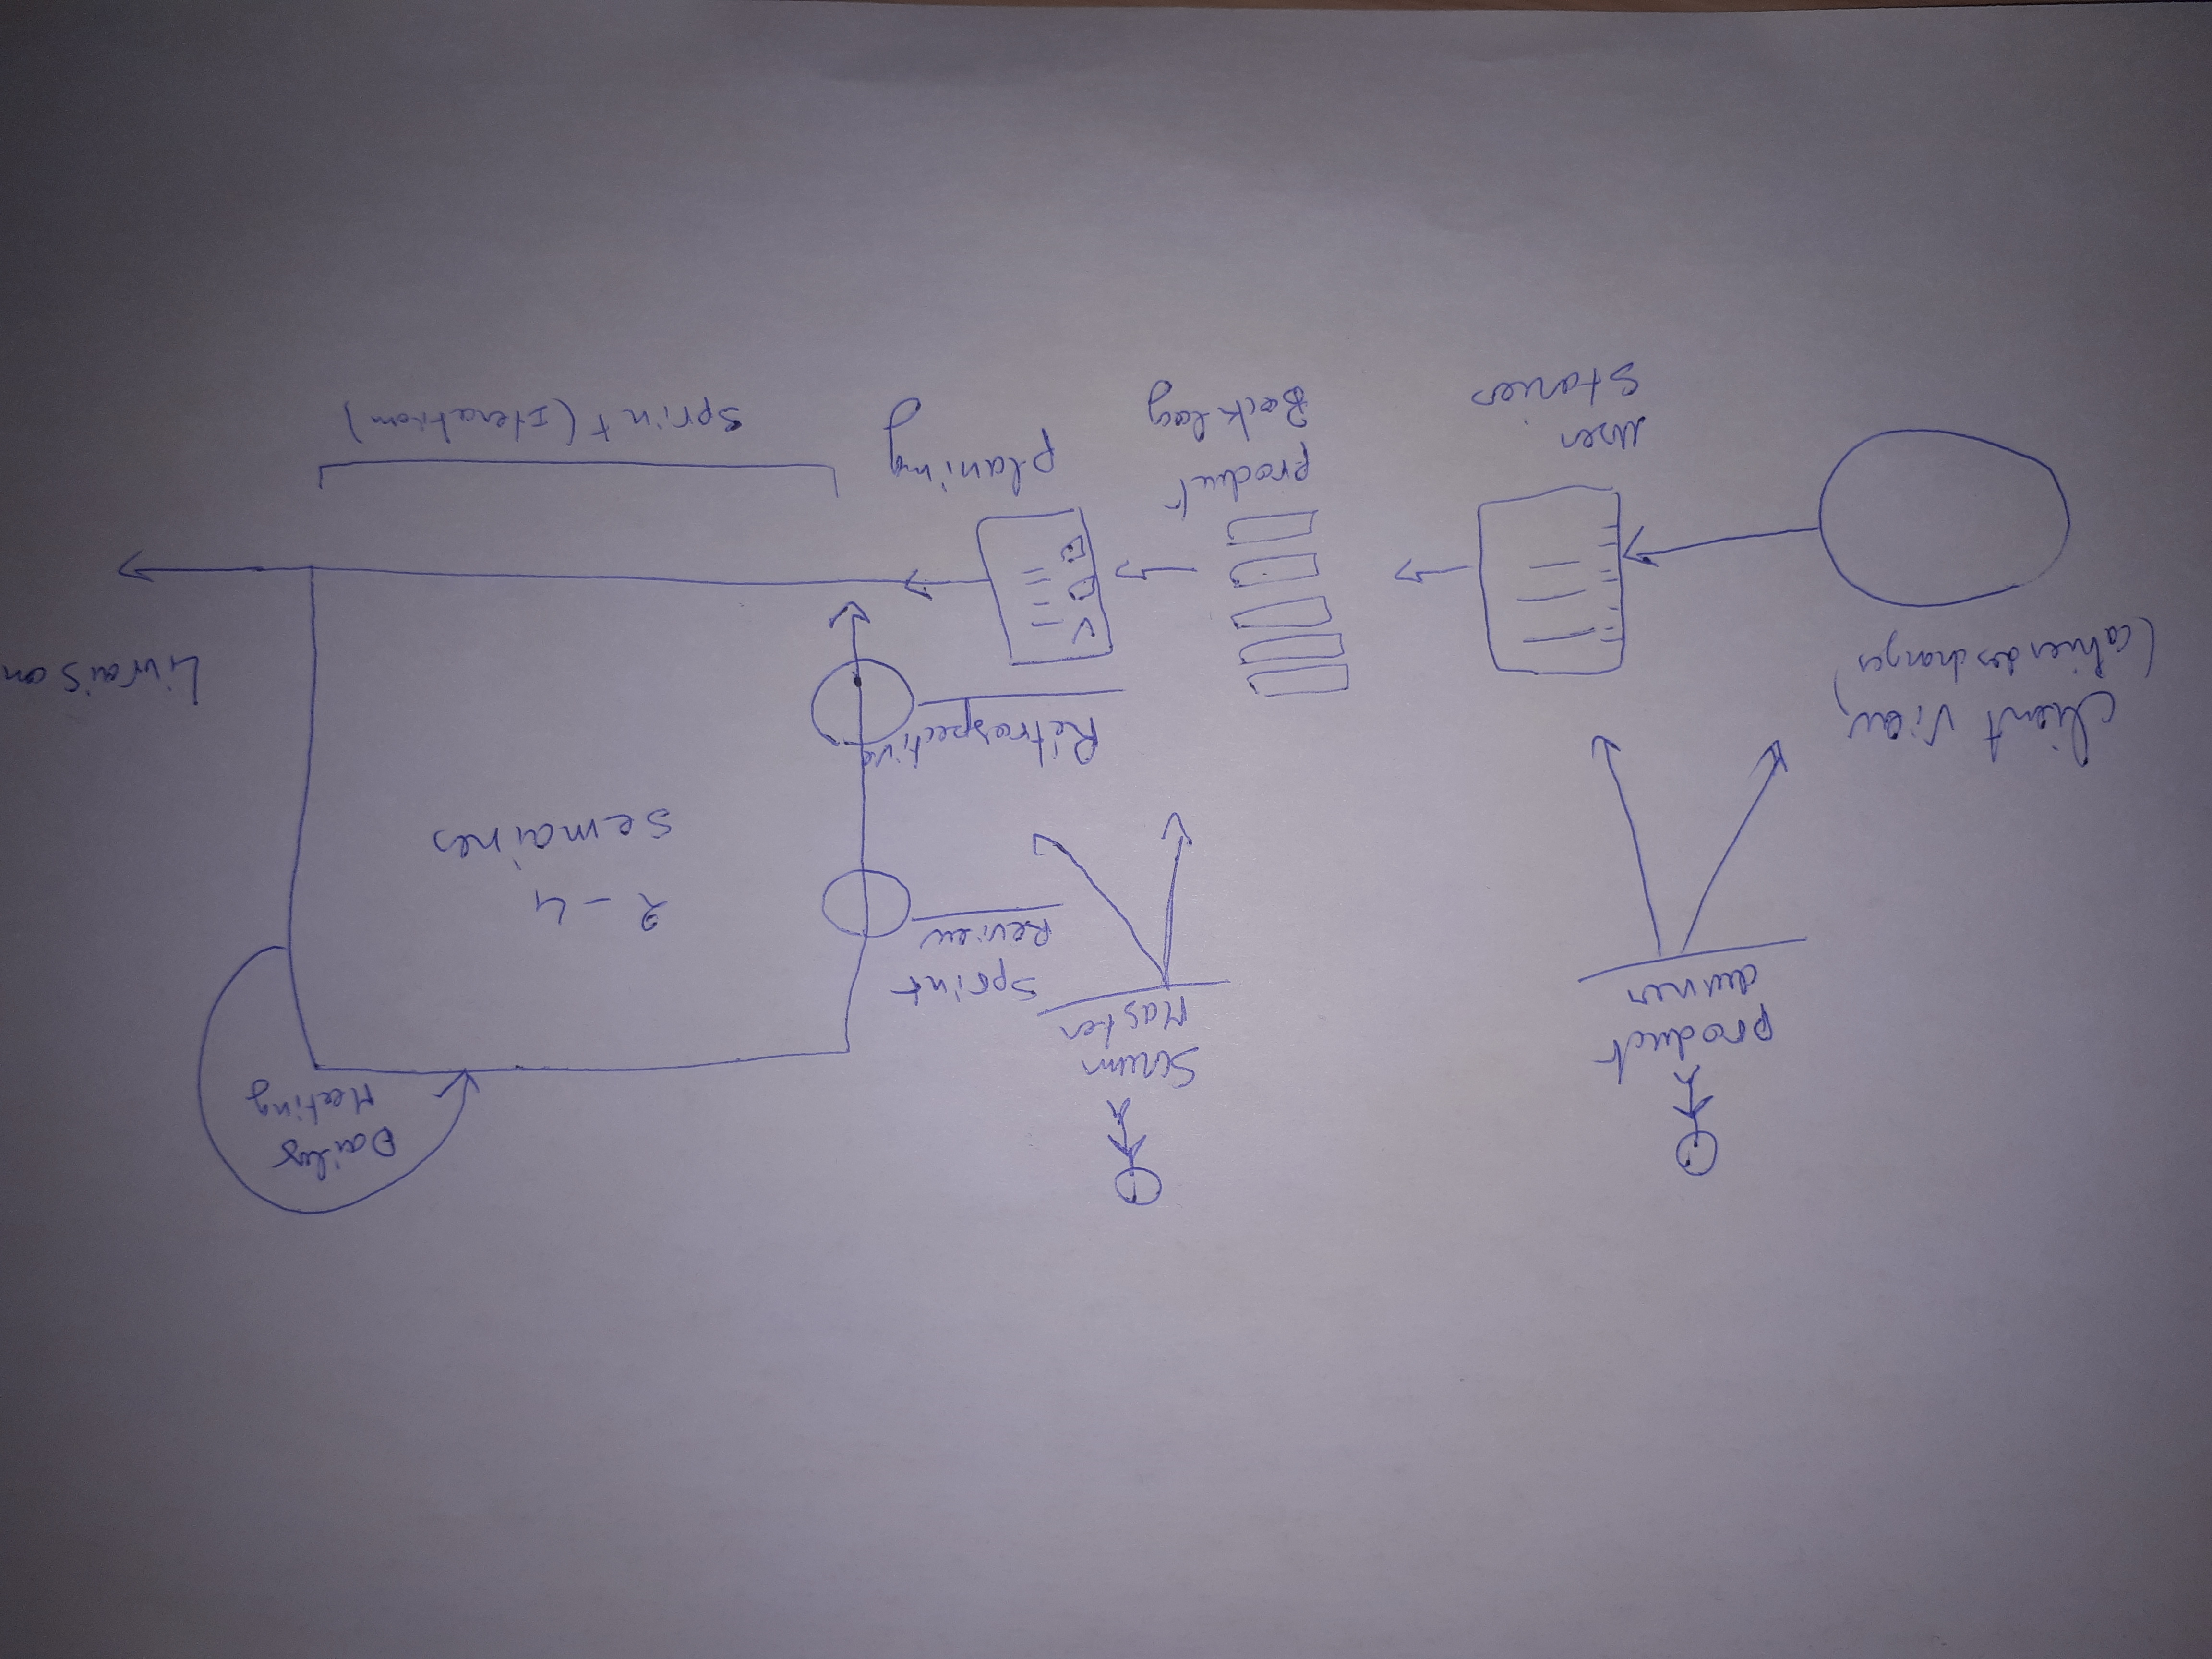 product
owner
Scrum
Master
Sprint
Review
Daily
Meeting
2 - 4
semaines
Rétrospective
client view
(cahier des charges)
Livraison
user
stories
product
Backlog
planing
Sprint (Iteration)